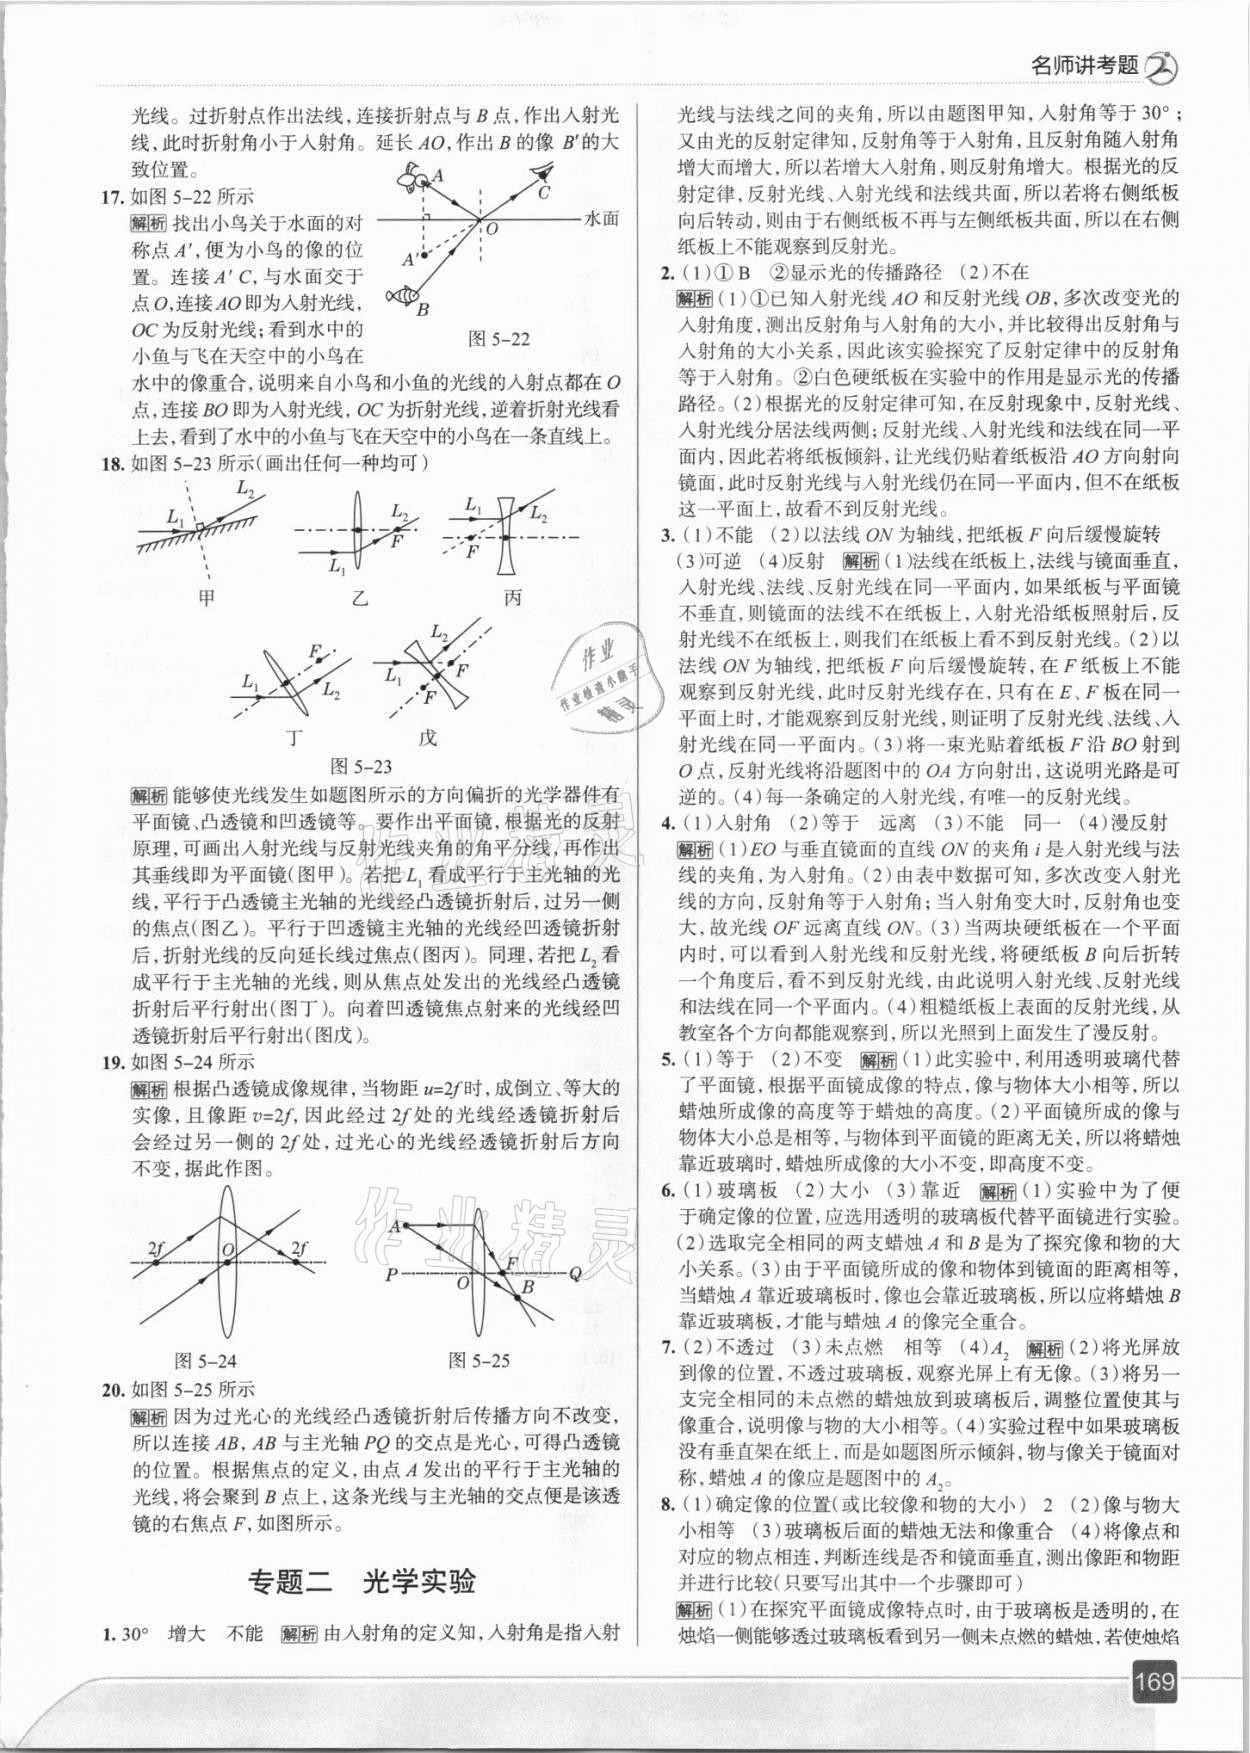 名师讲考题
光线。过折射点作出法线,连接折射点与 B 点,作出入射光
线,此时折射角小于入射角。延长 AO,作出 B 的像 B′的大
致位置。
17. 如图 5-22 所示
解析 找出小鸟关于水面的对
称点 A′,便为小鸟的像的位
置。连接 A′C,与水面交于
点 O,连接 AO 即为入射光线,
OC 为反射光线;看到水中的
小鱼与飞在天空中的小鸟在
A
C
O
水面
A′
B
图 5-22
水中的像重合,说明来自小鸟和小鱼的光线的入射点都在 O
点,连接 BO 即为入射光线, OC 为折射光线,逆着折射光线看
上去,看到了水中的小鱼与飞在天空中的小鸟在一条直线上。
18. 如图 5-23 所示(画出任何一种均可)
L₁ L₂ 甲
L₁ L₂ F 乙
L₁ L₂ F 丙
L₁ L₂ F 丁
L₁ L₂ F F 戊
图 5-23
解析 能够使光线发生如题图所示的方向偏折的光学器件有
平面镜、凸透镜和凹透镜等。要作出平面镜,根据光的反射
原理,可画出入射光线与反射光线夹角的角平分线,再作出
其垂线即为平面镜(图甲)。若把 L₁ 看成平行于主光轴的光
线,平行于凸透镜主光轴的光线经凸透镜折射后,过另一侧
的焦点(图乙)。平行于凹透镜主光轴的光线经凹透镜折射
后,折射光线的反向延长线过焦点(图丙)。同理,若把 L₂ 看
成平行于主光轴的光线,则从焦点处发出的光线经凸透镜
折射后平行射出(图丁)。向着凹透镜焦点射来的光线经凹
透镜折射后平行射出(图戊)。
19. 如图 5-24 所示
解析 根据凸透镜成像规律,当物距 u=2f 时,成倒立、等大的
实像,且像距 v=2f,因此经过 2f 处的光线经透镜折射后
会经过另一侧的 2f 处,过光心的光线经透镜折射后方向
不变,据此作图。
2f O 2f
图 5-24
A P O F B Q
图 5-25
20. 如图 5-25 所示
解析 因为过光心的光线经凸透镜折射后传播方向不改变,
所以连接 AB, AB 与主光轴 PQ 的交点是光心,可得凸透镜
的位置。根据焦点的定义,由点 A 发出的平行于主光轴的
光线,将会聚到 B 点上,这条光线与主光轴的交点便是该透
镜的右焦点 F,如图所示。
专题二 光学实验
1. 30° 增大 不能 解析 由入射角的定义知,入射角是指入射
光线与法线之间的夹角,所以由题图甲知,入射角等于 30°;
又由光的反射定律知,反射角等于入射角,且反射角随入射角
增大而增大,所以若增大入射角,则反射角增大。根据光的反
射定律,反射光线、入射光线和法线共面,所以若将右侧纸板
向后转动,则由于右侧纸板不再与左侧纸板共面,所以在右侧
纸板上不能观察到反射光。
2. (1)①B ②显示光的传播路径 (2)不在
解析 (1)①已知入射光线 AO 和反射光线 OB,多次改变光的
入射角度,测出反射角与入射角的大小,并比较得出反射角与
入射角的大小关系,因此该实验探究了反射定律中的反射角
等于入射角。②白色硬纸板在实验中的作用是显示光的传播
路径。(2)根据光的反射定律可知,在反射现象中,反射光线、
入射光线分居法线两侧;反射光线、入射光线和法线在同一平
面内,因此若将纸板倾斜,让光线仍贴着纸板沿 AO 方向射向
镜面,此时反射光线与入射光线仍在同一平面内,但不在纸板
这一平面上,故看不到反射光线。
3. (1)不能 (2)以法线 ON 为轴线,把纸板 F 向后缓慢旋转
(3)可逆 (4)反射 解析 (1)法线在纸板上,法线与镜面垂直,
入射光线、法线、反射光线在同一平面内,如果纸板与平面镜
不垂直,则镜面的法线不在纸板上,入射光沿纸板照射后,反
射光线不在纸板上,则我们在纸板上看不到反射光线。(2)以
法线 ON 为轴线,把纸板 F 向后缓慢旋转,在 F 纸板上不能
观察到反射光线,此时反射光线存在,只有在 E、F 板在同一
平面上时,才能观察到反射光线,则证明了反射光线、法线、入
射光线在同一平面内。(3)将一束光贴着纸板 F 沿 BO 射到
O 点,反射光线将沿题图中的 OA 方向射出,这说明光路是可
逆的。(4)每一条确定的入射光线,有唯一的反射光线。
4. (1)入射角 (2)等于 远离 (3)不能 同一 (4)漫反射
解析 (1)EO 与垂直镜面的直线 ON 的夹角 i 是入射光线与法
线的夹角,为入射角。(2)由表中数据可知,多次改变入射光
线的方向,反射角等于入射角;当入射角变大时,反射角也变
大,故光线 OF 远离直线 ON。(3)当两块硬纸板在一个平面
内时,可以看到入射光线和反射光线,将硬纸板 B 向后折转
一个角度后,看不到反射光线,由此说明入射光线、反射光线
和法线在同一个平面内。(4)粗糙纸板上表面的反射光线,从
教室各个方向都能观察到,所以光照到上面发生了漫反射。
5. (1)等于 (2)不变 解析 (1)此实验中,利用透明玻璃代替
了平面镜,根据平面镜成像的特点,像与物体大小相等,所以
蜡烛所成像的高度等于蜡烛的高度。(2)平面镜所成的像与
物体大小总是相等,与物体到平面镜的距离无关,所以将蜡烛
靠近玻璃时,蜡烛所成像的大小不变,即高度不变。
6. (1)玻璃板 (2)大小 (3)靠近 解析 (1)实验中为了便
于确定像的位置,应选用透明的玻璃板代替平面镜进行实验。
(2)选取完全相同的两支蜡烛 A 和 B 是为了探究像和物的大
小关系。(3)由于平面镜所成的像和物体到镜面的距离相等,
当蜡烛 A 靠近玻璃板时,像也会靠近玻璃板,所以应将蜡烛 B
靠近玻璃板,才能与蜡烛 A 的像完全重合。
7. (2)不透过 (3)未点燃 相等 (4)A₂ 解析 (2)将光屏放
到像的位置,不透过玻璃板,观察光屏上有无像。(3)将另一
支完全相同的未点燃的蜡烛放到玻璃板后,调整位置使其与
像重合,说明像与物的大小相等。(4)实验过程中如果玻璃板
没有垂直架在纸上,而是如题图所示倾斜,物与像关于镜面对
称,蜡烛 A 的像应是题图中的 A₂。
8. (1)确定像的位置(或比较像和物的大小) 2 (2)像与物大
小相等 (3)玻璃板后面的蜡烛无法和像重合 (4)将像点和
对应的物点相连,判断连线是否和镜面垂直,测出像距和物距
并进行比较(只要写出其中一个步骤即可)
解析 (1)在探究平面镜成像特点时,由于玻璃板是透明的,在
烛焰一侧能够透过玻璃看到另一侧未点燃的蜡烛,若使烛焰
作业
作业检查小助手
精灵
作业精灵
作业精灵
169